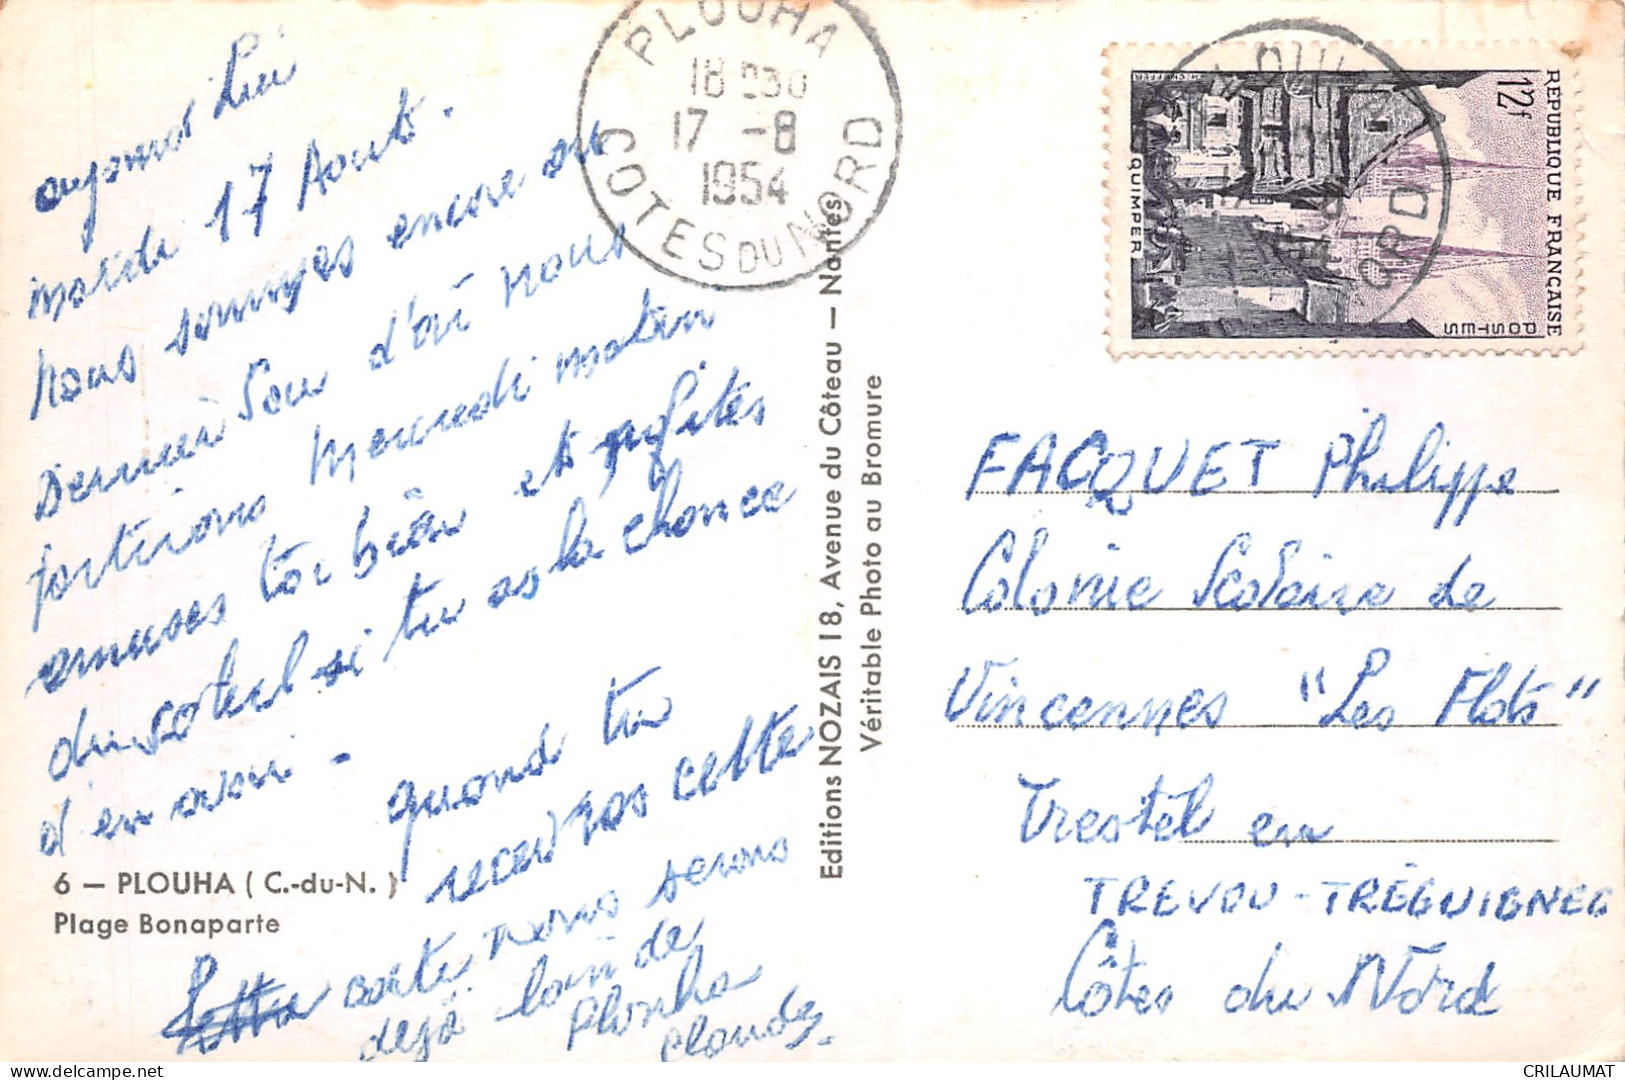 aujourd'hui
mardi 17 Aout.
nous sommes encore au
Dernier Jour d'où nous
partirons Mercredi matin
amuses toi bien et profites
du soleil si tu as la chance
d'en avoir -
quand tu
recevras cette
carte nous serons
déjà loin de
Plouha
Claude.
6 — PLOUHA ( C.-du-N. )
Plage Bonaparte
PLOUHA
18 H30
17 -8
1954
COTES DU NORD
Editions NOZAIS 18, Avenue du Côteau — Nantes
Véritable Photo au Bromure
REPUBLIQUE FRANÇAISE
12f
POSTES
QUIMPER
FACQUET Philippe
Colonie Scolaire de
Vincennes "Les Flots"
Trestel en
TREVOU-TRÉGUIGNEC
Côtes du Nord
CRILAUMAT